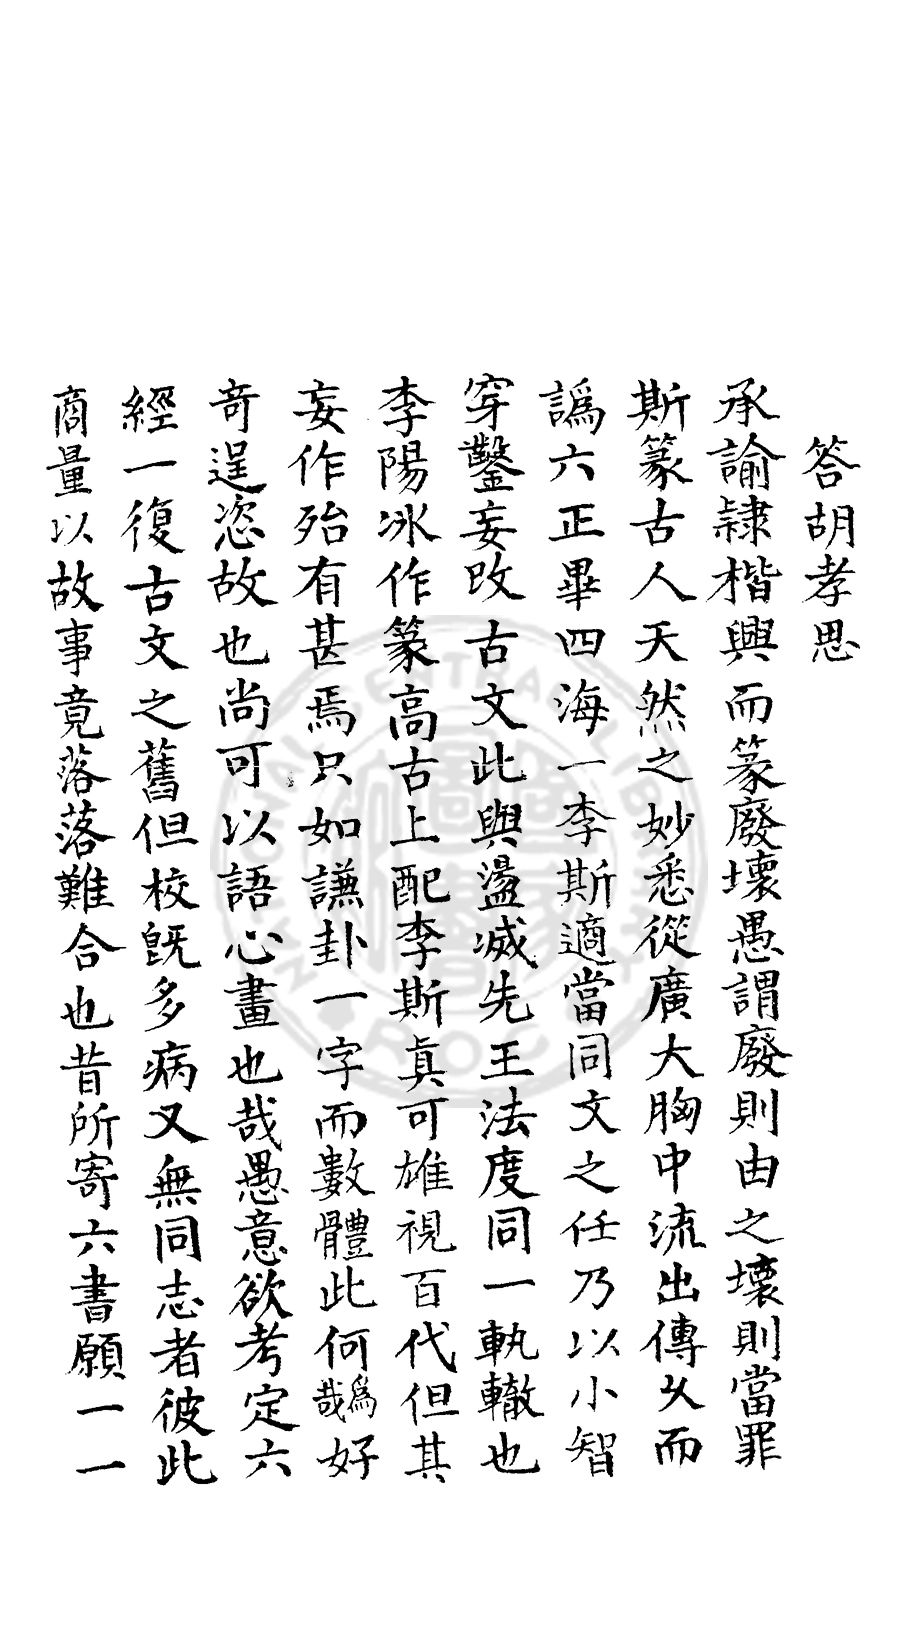 答胡孝思
承諭隷楷興而篆廢壞愚謂廢則由之壞則當罪
斯篆古人天然之妙悉從廣大胸中流出傳久而
譌六正畢四海一李斯適當同文之任乃以小智
穿鑿妄改古文此與盪滅先王法度同一軌轍也
李陽冰作篆高古上配李斯真可雄視百代但其
妄作殆有甚焉只如謙卦一字而數體此何為哉好
奇逞恣故也尚可以語心畫也哉愚意欲考定六
經一復古文之舊但校旣多病又無同志者彼此
商量以故事竟落落難合也昔所寄六書願一一